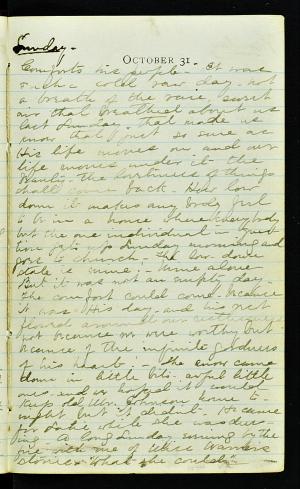 Sunday -
OCTOBER 31
Comforts his people - It was
such a cold raw day - not
a breath of the rare, sweet
air that breathed about us
last Sunday. That made us
know that just so sure as
His life moves on and our
life moves under it the
the loveliness of things
shall come back - How low
down it makes any body feel
to be in a house where everybody
but the one individual in ques-
tion gets up Sunday morning and
goes to church. The low-down
state is mine; - mine alone
But it was not an empty day -
The comfort could come - because
it was His day - and his rest
flowed around our
not because we were worthy but
because of the infinite goodness
of his heart. The snow came
down in little bits - awful little
ones, and we hoped it would
home to
night but it didn't. He came
for while she was dress-
ing. A long Sunday evening by the
one with one of Alice
stories "What she could"